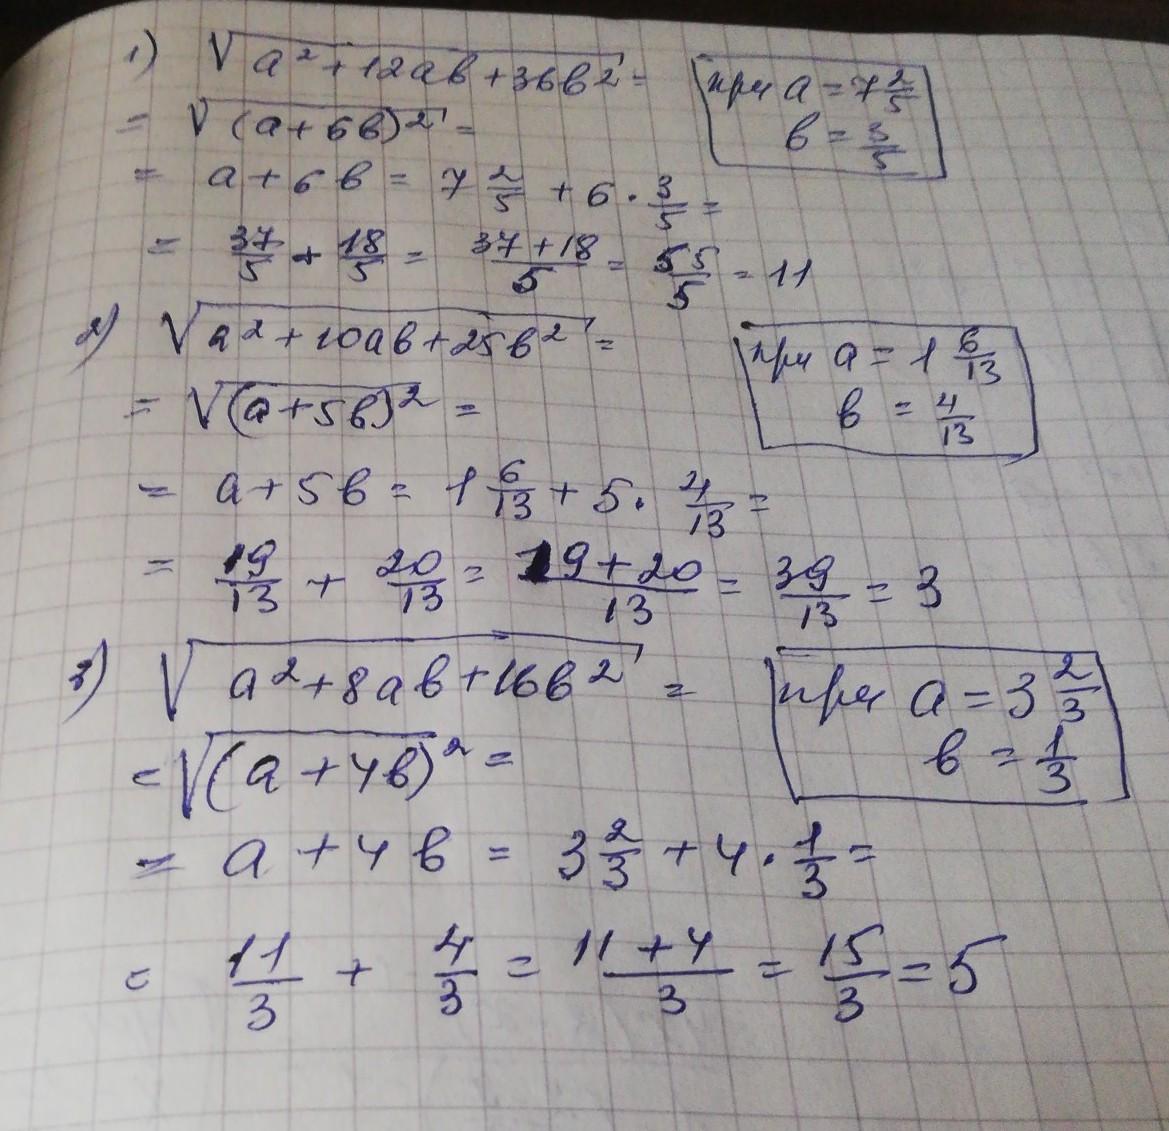 1) √(a² + 12ab + 36b²) = при a = 7 2/5
= √((a + 6b)²) = b = 3/5
= a + 6b = 7 2/5 + 6 · 3/5 =
= 37/5 + 18/5 = (37 + 18)/5 = 55/5 = 11
2) √(a² + 10ab + 25b²) = при a = 1 6/13
= √((a + 5b)²) = b = 4/13
= a + 5b = 1 6/13 + 5 · 4/13 =
= 19/13 + 20/13 = (19 + 20)/13 = 39/13 = 3
3) √(a² + 8ab + 16b²) = при a = 3 2/3
= √((a + 4b)²) = b = 1/3
= a + 4b = 3 2/3 + 4 · 1/3 =
= 11/3 + 4/3 = (11 + 4)/3 = 15/3 = 5